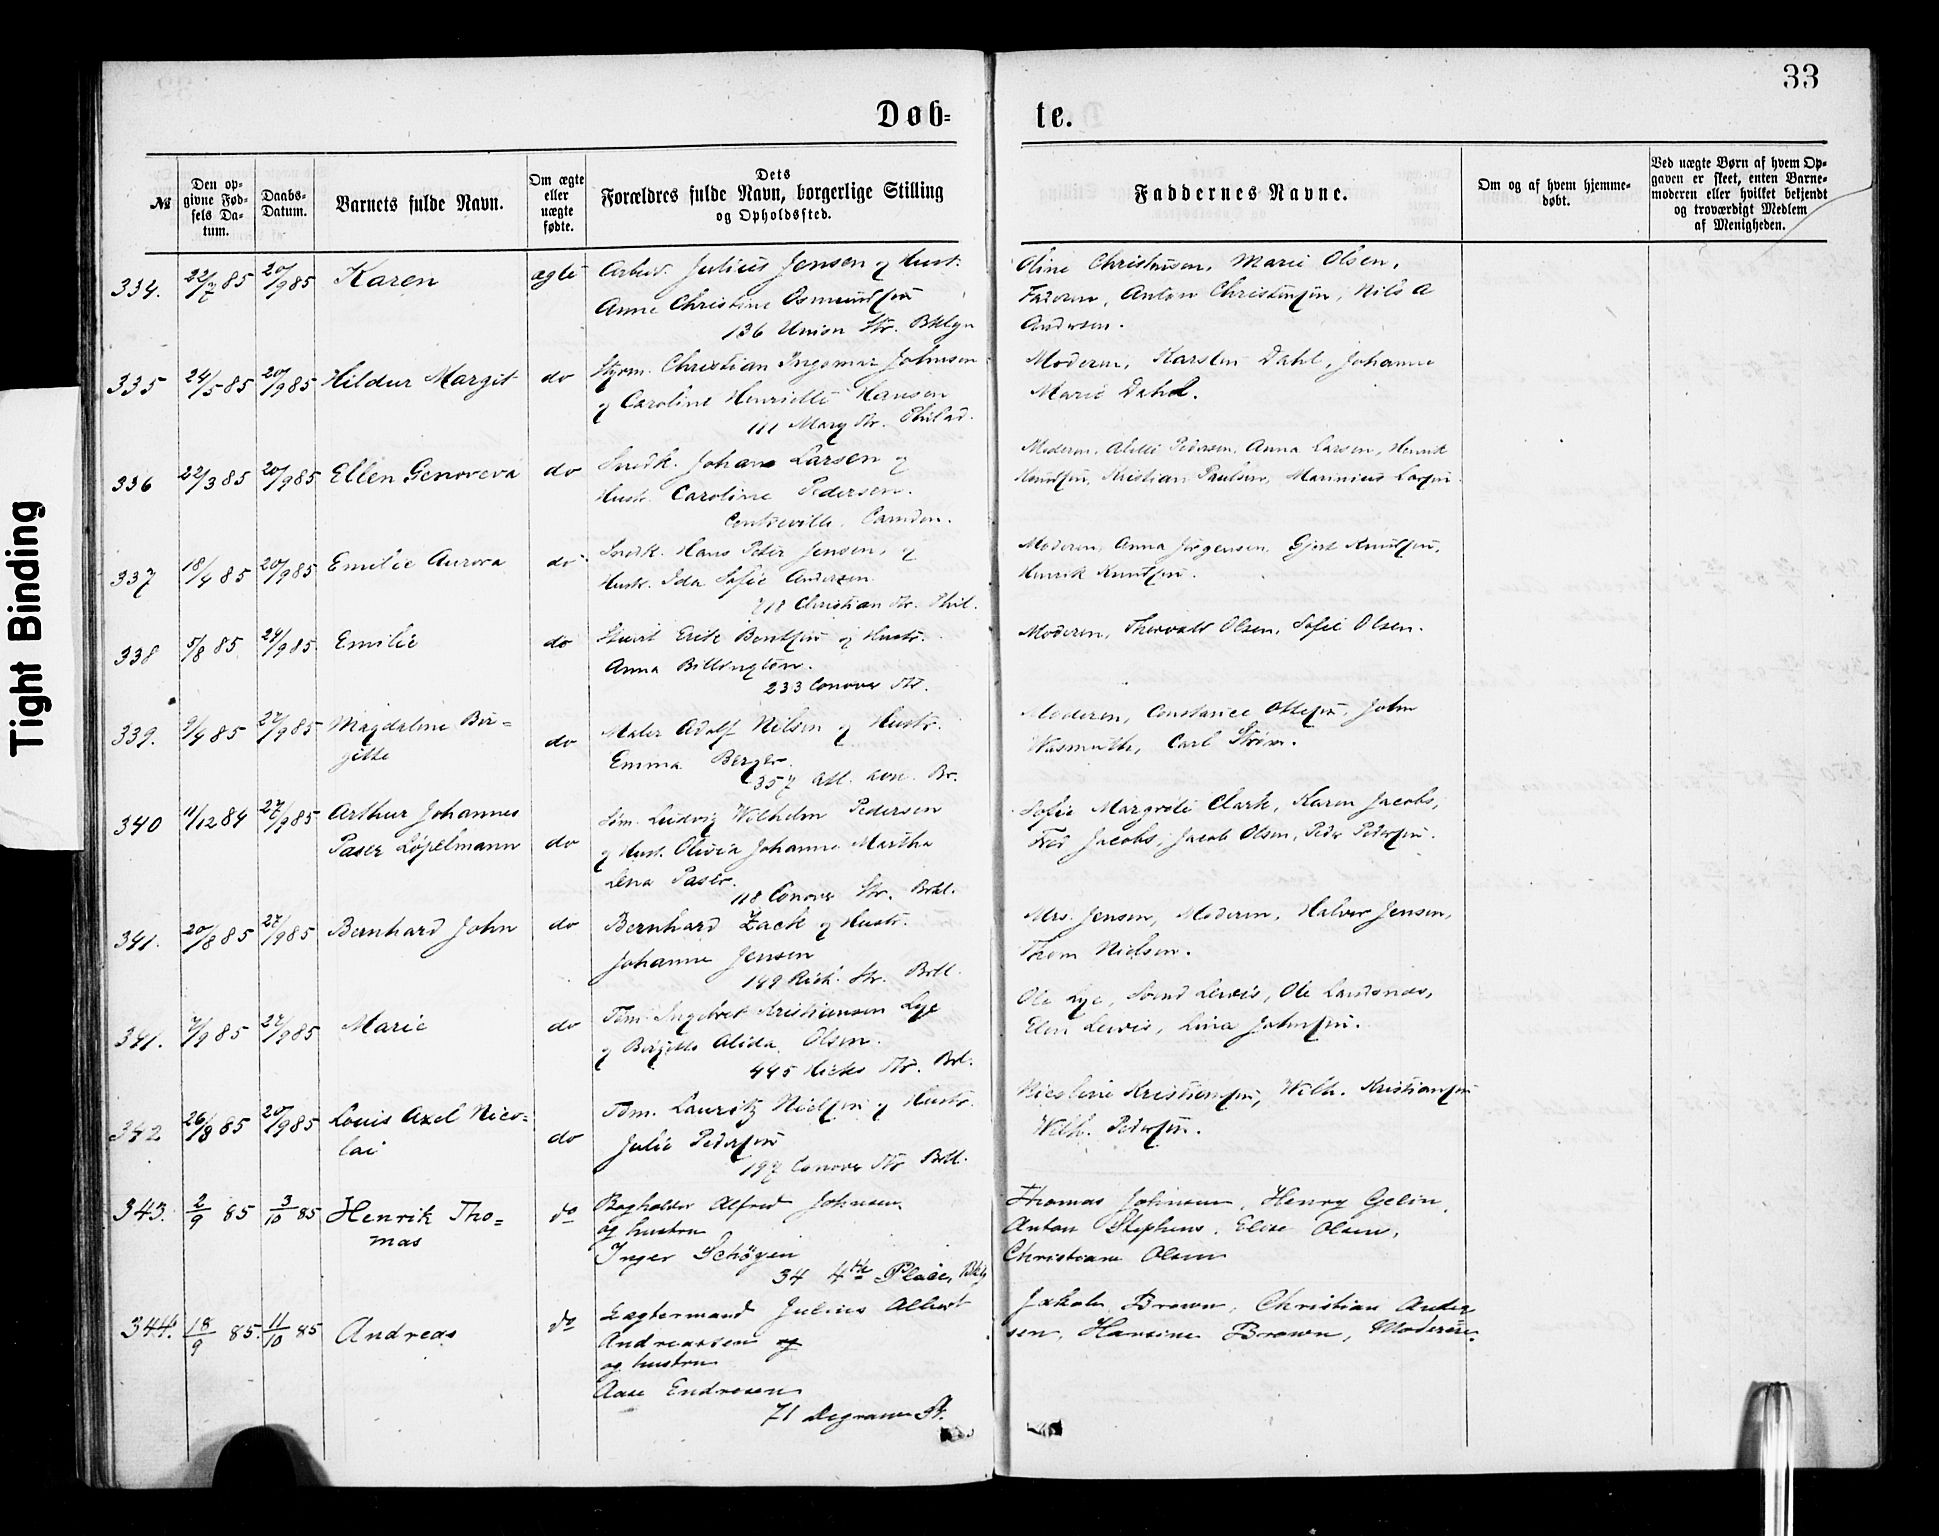 33
Døb-
te.
Tight Binding
№
Den op-
givne Fød-
sels Da-
tum.
Daabs-
Datum.
Barnets fulde Navn.
Om ægte
eller
uægte
fødte.
Dets
Forældres fulde Navn, borgerlige Stilling
og Opholdssted.
Faddernes Navne.
Om og af hvem hjemme-
døbt.
Ved uægte Børn af hvem Op-
gaven er skeet, enten Barne-
moderen eller hvilket bekjendt
og troværdigt Medlem
af Menigheden.
334. 22/7 85 20/9 85 Karen ægte Arbeid. Julius Jensen og Hust.
Anne Christine Osmundsen
136 Union Str. Bklyn
Oline Christensen, Marie Olsen,
Faderen, Anton Christensen, Nils A
Andersen.
335 24/5 85 20/9 85 Hildur Margit do Styrm. Christian Ingomar Johnsen
og Caroline Henriette Hansen
111 Mary Str. Philad.
Moderen, Karsten Dahl, Johanne
Marie Dahl.
336 22/3 85 20/9 85 Ellen Genoveva do Snedk. Johan Larsen og
Hust. Caroline Pedersen.
Centreville. Camden.
Moderen, Pedersen, Anna Larsen, Henrik
Knudsen, Kristian Paulsen, Marinius Larsen.
337 18/4 85 20/9 85 Emilie Aurora do Snedk. Hans Peter Jensen, og
Hust. Ida Sofie Andersen
718 Christian Str. Phil.
Moderen, Anna Jørgensen, Gjert Knudsen,
Henrik Knudsen.
338 5/8 85 24/9 85 Emilie do Erik Bentsen og Hustr.
Anna Billington.
233 Conover Str.
Moderen, Thorvald Olsen, Sofie Olsen.
339. 9/4 85 27/9 85 Magdaline Bir-
gitte do Maler Adolf Nilsen og Hustr.
Emma Berger.
357 Atl. Ave. Br.
Moderen, Constance Ottesen, John
Wasmuth, Carl Strøm.
340 11/12 84 27/9 85 Arthur Johannes
Paser Løpelmann do Søm. Ludvig Wilhelm Pedersen
og Hust. Olivia Johanne Martha
Lena Paser.
118 Conover Str. Brkl.
Sofie Margrete Clark, Karen Jacobs,
Fred Jacobs, Jacob Olsen, Peder Pedersen.
341. 20/8 85 27/9 85 Bernhard John do Bernhard Zack og Hustr.
Johanne Jensen
149 Rich. Str. Brkl.
Mrs. Jensen, Moderen, Halvor Jensen,
Thom Nielsen.
341. 7/9 85 27/9 85 Marie do Tøm. Ingebret Kristiansen Lye
og Birgitte Alida Olsen.
445 Hicks Str. Brl.
Ole Lye, Svend Lewis, Ole Landsnes,
Elen Lewis, Lina Johnsen.
342 26/8 85 20/9 85 Louis Axel Nico-
lai do Tøm. Lauritz Nielsen og Hustr
Julie Pedersen
197 Conover Str Brkl.
Nicoline Kristiansen, Wilh. Kristiansen
Wilh. Pedersen.
343. 2/9 85 3/10 85 Henrik Tho-
mas do Bogholder Alfred Johnsen
og hustru
Inger Schøyen
34 4th Place, Bkly
Thomas Johnsen, Henry Gelin,
Anton Stephens, Elise Olsen,
Christiane Olsen
344. 18/9 85. 11/10 85 Andreas do Lægtermand Julius Albert
Andreassen og
og hustru
Aase Endresen
71 Degraw St.
Jakob Brown, Christian Ander
sen, Hansine Brown, Moderen.